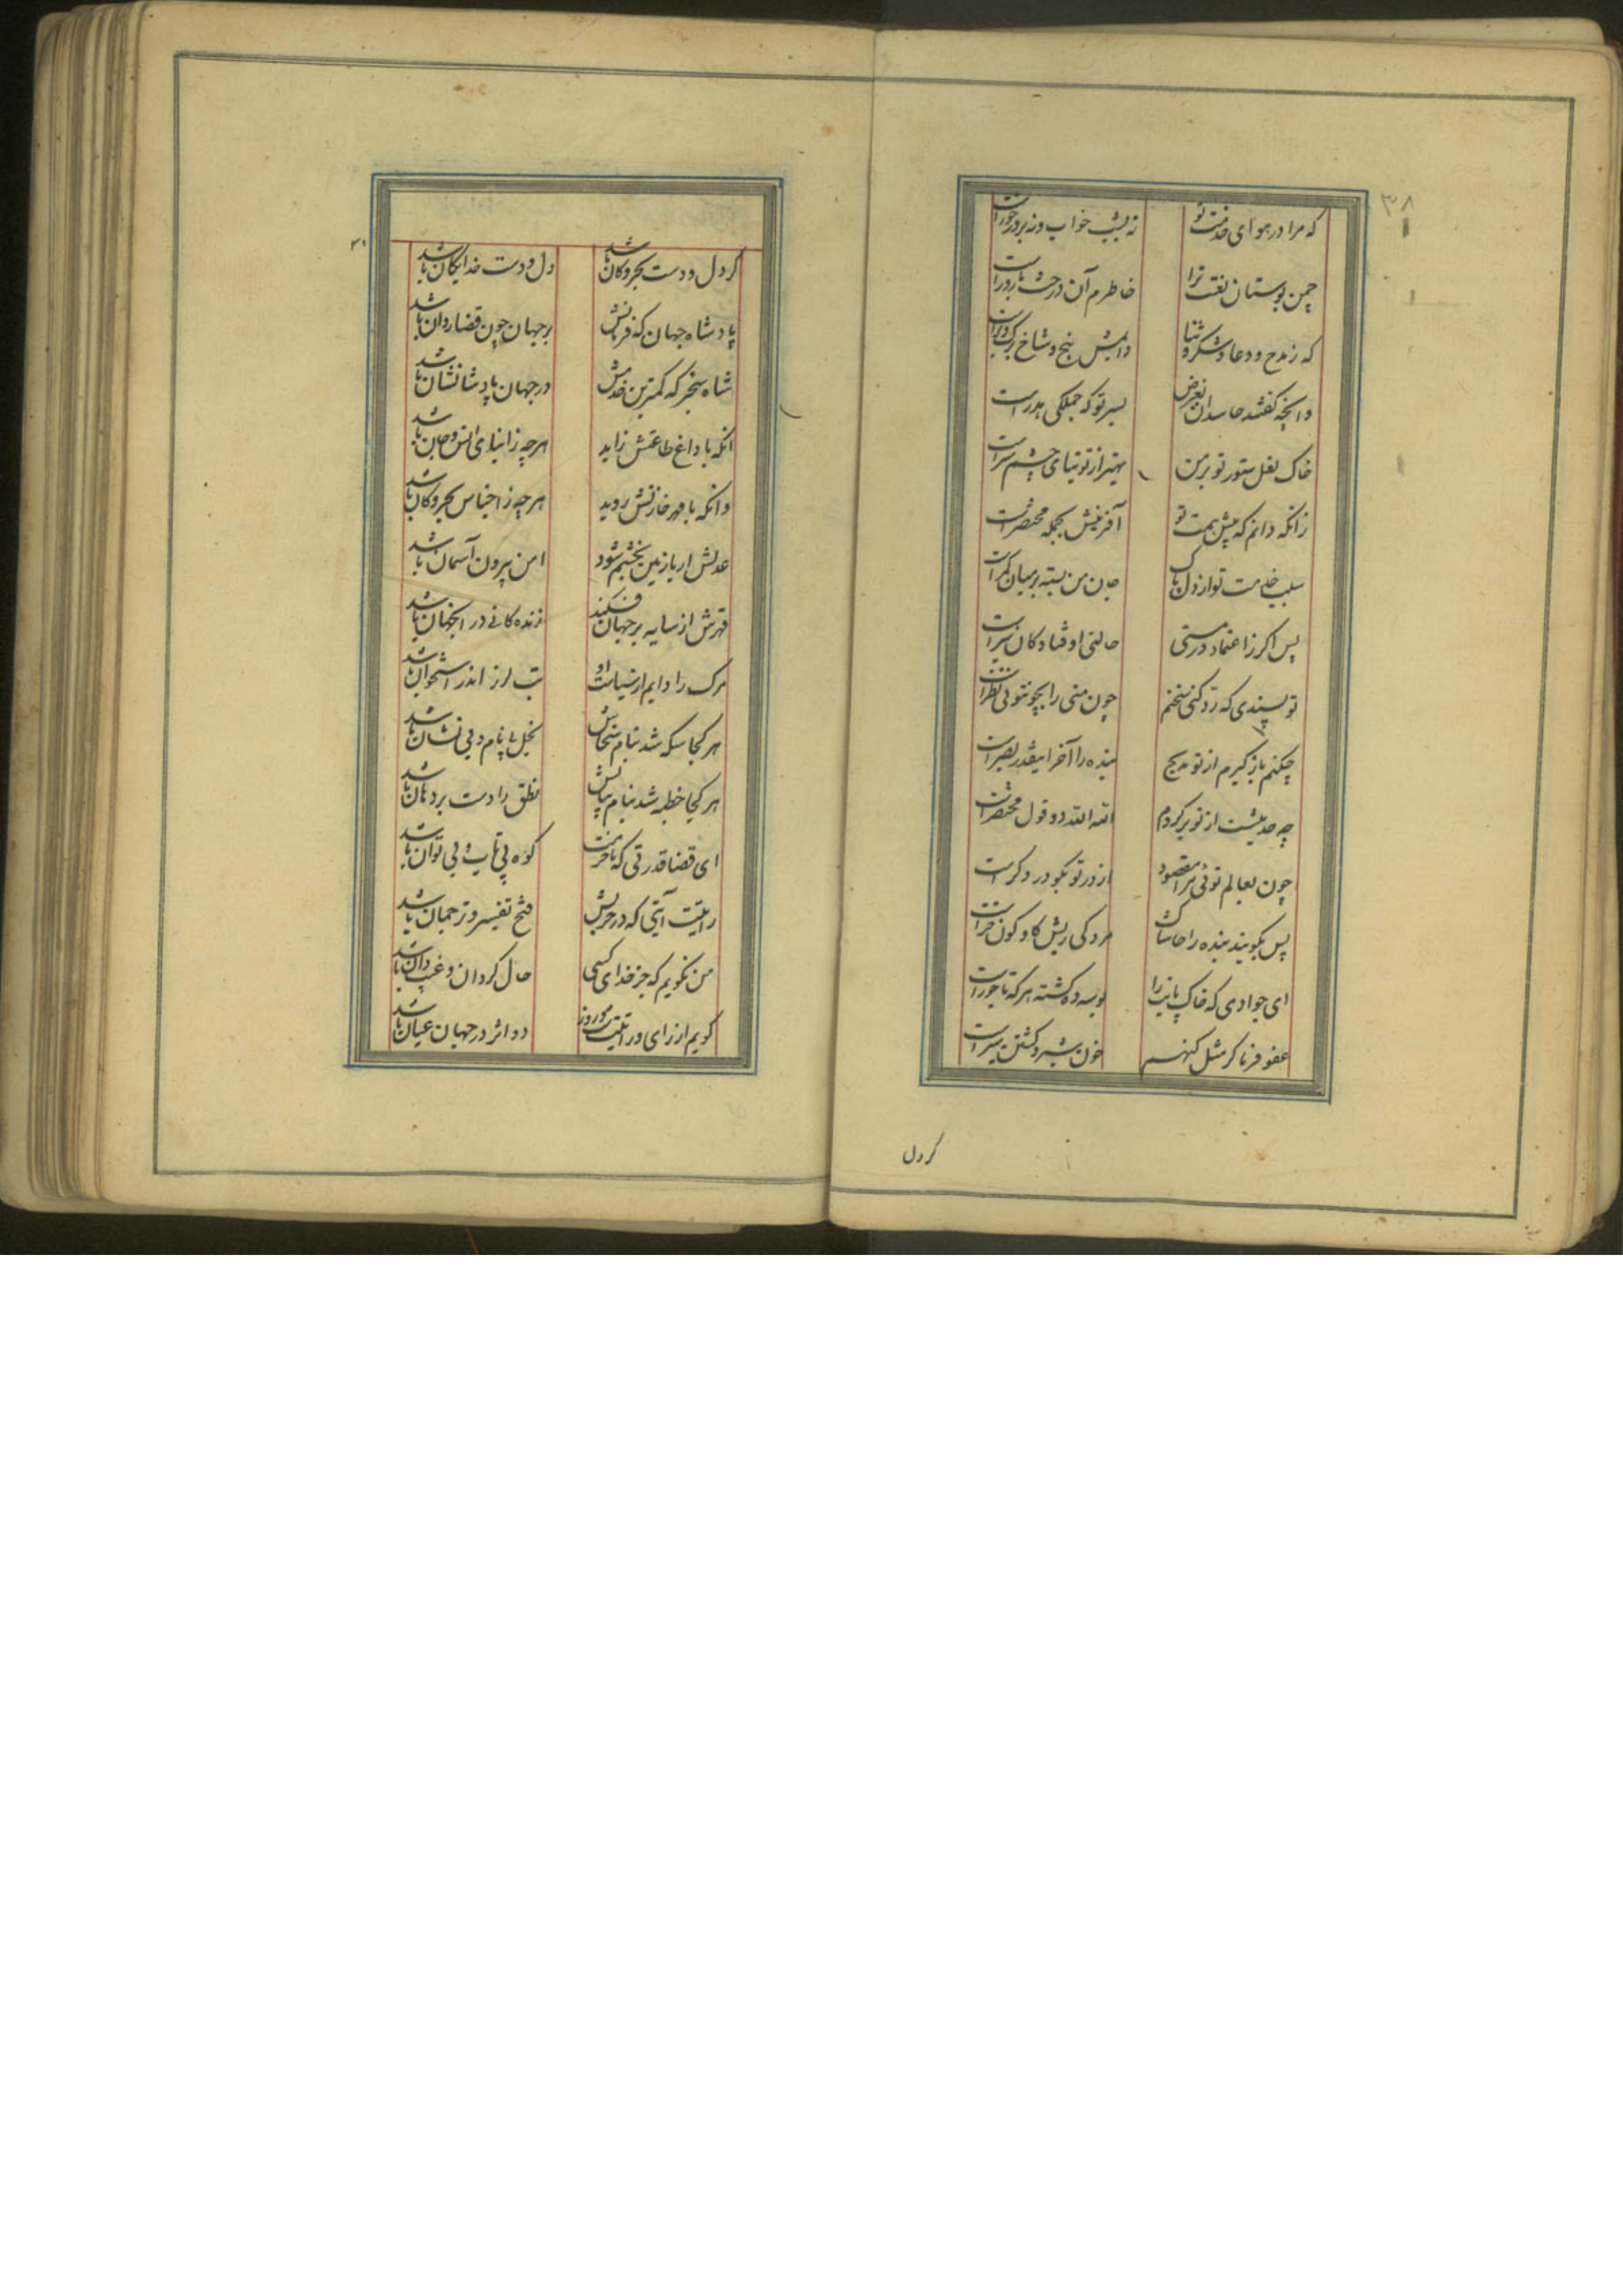 ۳۸
که مرا در هوای خدمت تو نه بشب خواب و نه بروز خورست
چمن بوستان نعت ترا خاطرم آن درخت بارورست
که ز مدح و دعا و شکر و ثنا دایمش بیخ و شاخ و برک و برست
وانچه کفتند حاسدان بغرض بسر تو که جملکی هدرست
خاک نعل ستور تو بر من بهتر از توتیای چشم سرست
زانکه دانم که پیش همت تو آفرینش بجمله مختصرست
سلب خدمت تو از دل پاک جان من بسته بر میان کمرست
پس اکر ز اعتماد در مستی حالتی اوفتاد کان سیرست
تو پسندی که رد کنی سخنم چون منی را بچو تتوئی نظرست
چکنم باز کیرم از تو مدیح بنده را آخر اینقدر بصرست
چه حدیثست از تو برکردم الله الله دو قول مختصرست
چون بعالم توئی مرا مقصود از در تو بکو در دکرست
پس بکویند بنده را حاشاک مردکی ریش کاو کون خرست
ای جوادی که خاک پایترا بوسه ده کشته هر که تاجورست
عفو فرما کر مثل کنهم خون شبیر و کشتن شبرست
کر دل
۳۱
کر دل و دست بحر و کان باشد دل و دست خدایکان باشد
پادشاه جهان که فرمانش بر جهان چون قضا روان باشد
شاه سنجر که کمترین خدمش در جهان پادشا نشان باشد
انکه با داغ طاعتش زاید هر چه ز ابنای انس و جان باشد
وانکه با مهر خازنش روید هر چه ز اجناس بحر و کان باشد
عدلش ار با زمین بخشم شود امن بیرون آسمان باشد
قهرش ار سایه بر جهان فکند زندکانی در انجهان باشد
مرک را دایم از سیاست او تب لرز اندر استخوان باشد
هر کجا سکه شد بنام سخاش بخل بی نام و بی نشان باشد
هر کجا خطبه شد بنام بیانش نطق را دست بر دهان باشد
ای قضا قدرتی که با حزمت کوه بی تاب و بی توان باشد
رایتت آیتی که در حربش فتح تفسیر و ترجمان باشد
من نکویم که جز خدای کسی حال کردان و غیب دان باشد
کویم از رای و رایتت شب و روز دو اثر در جهان عیان باشد